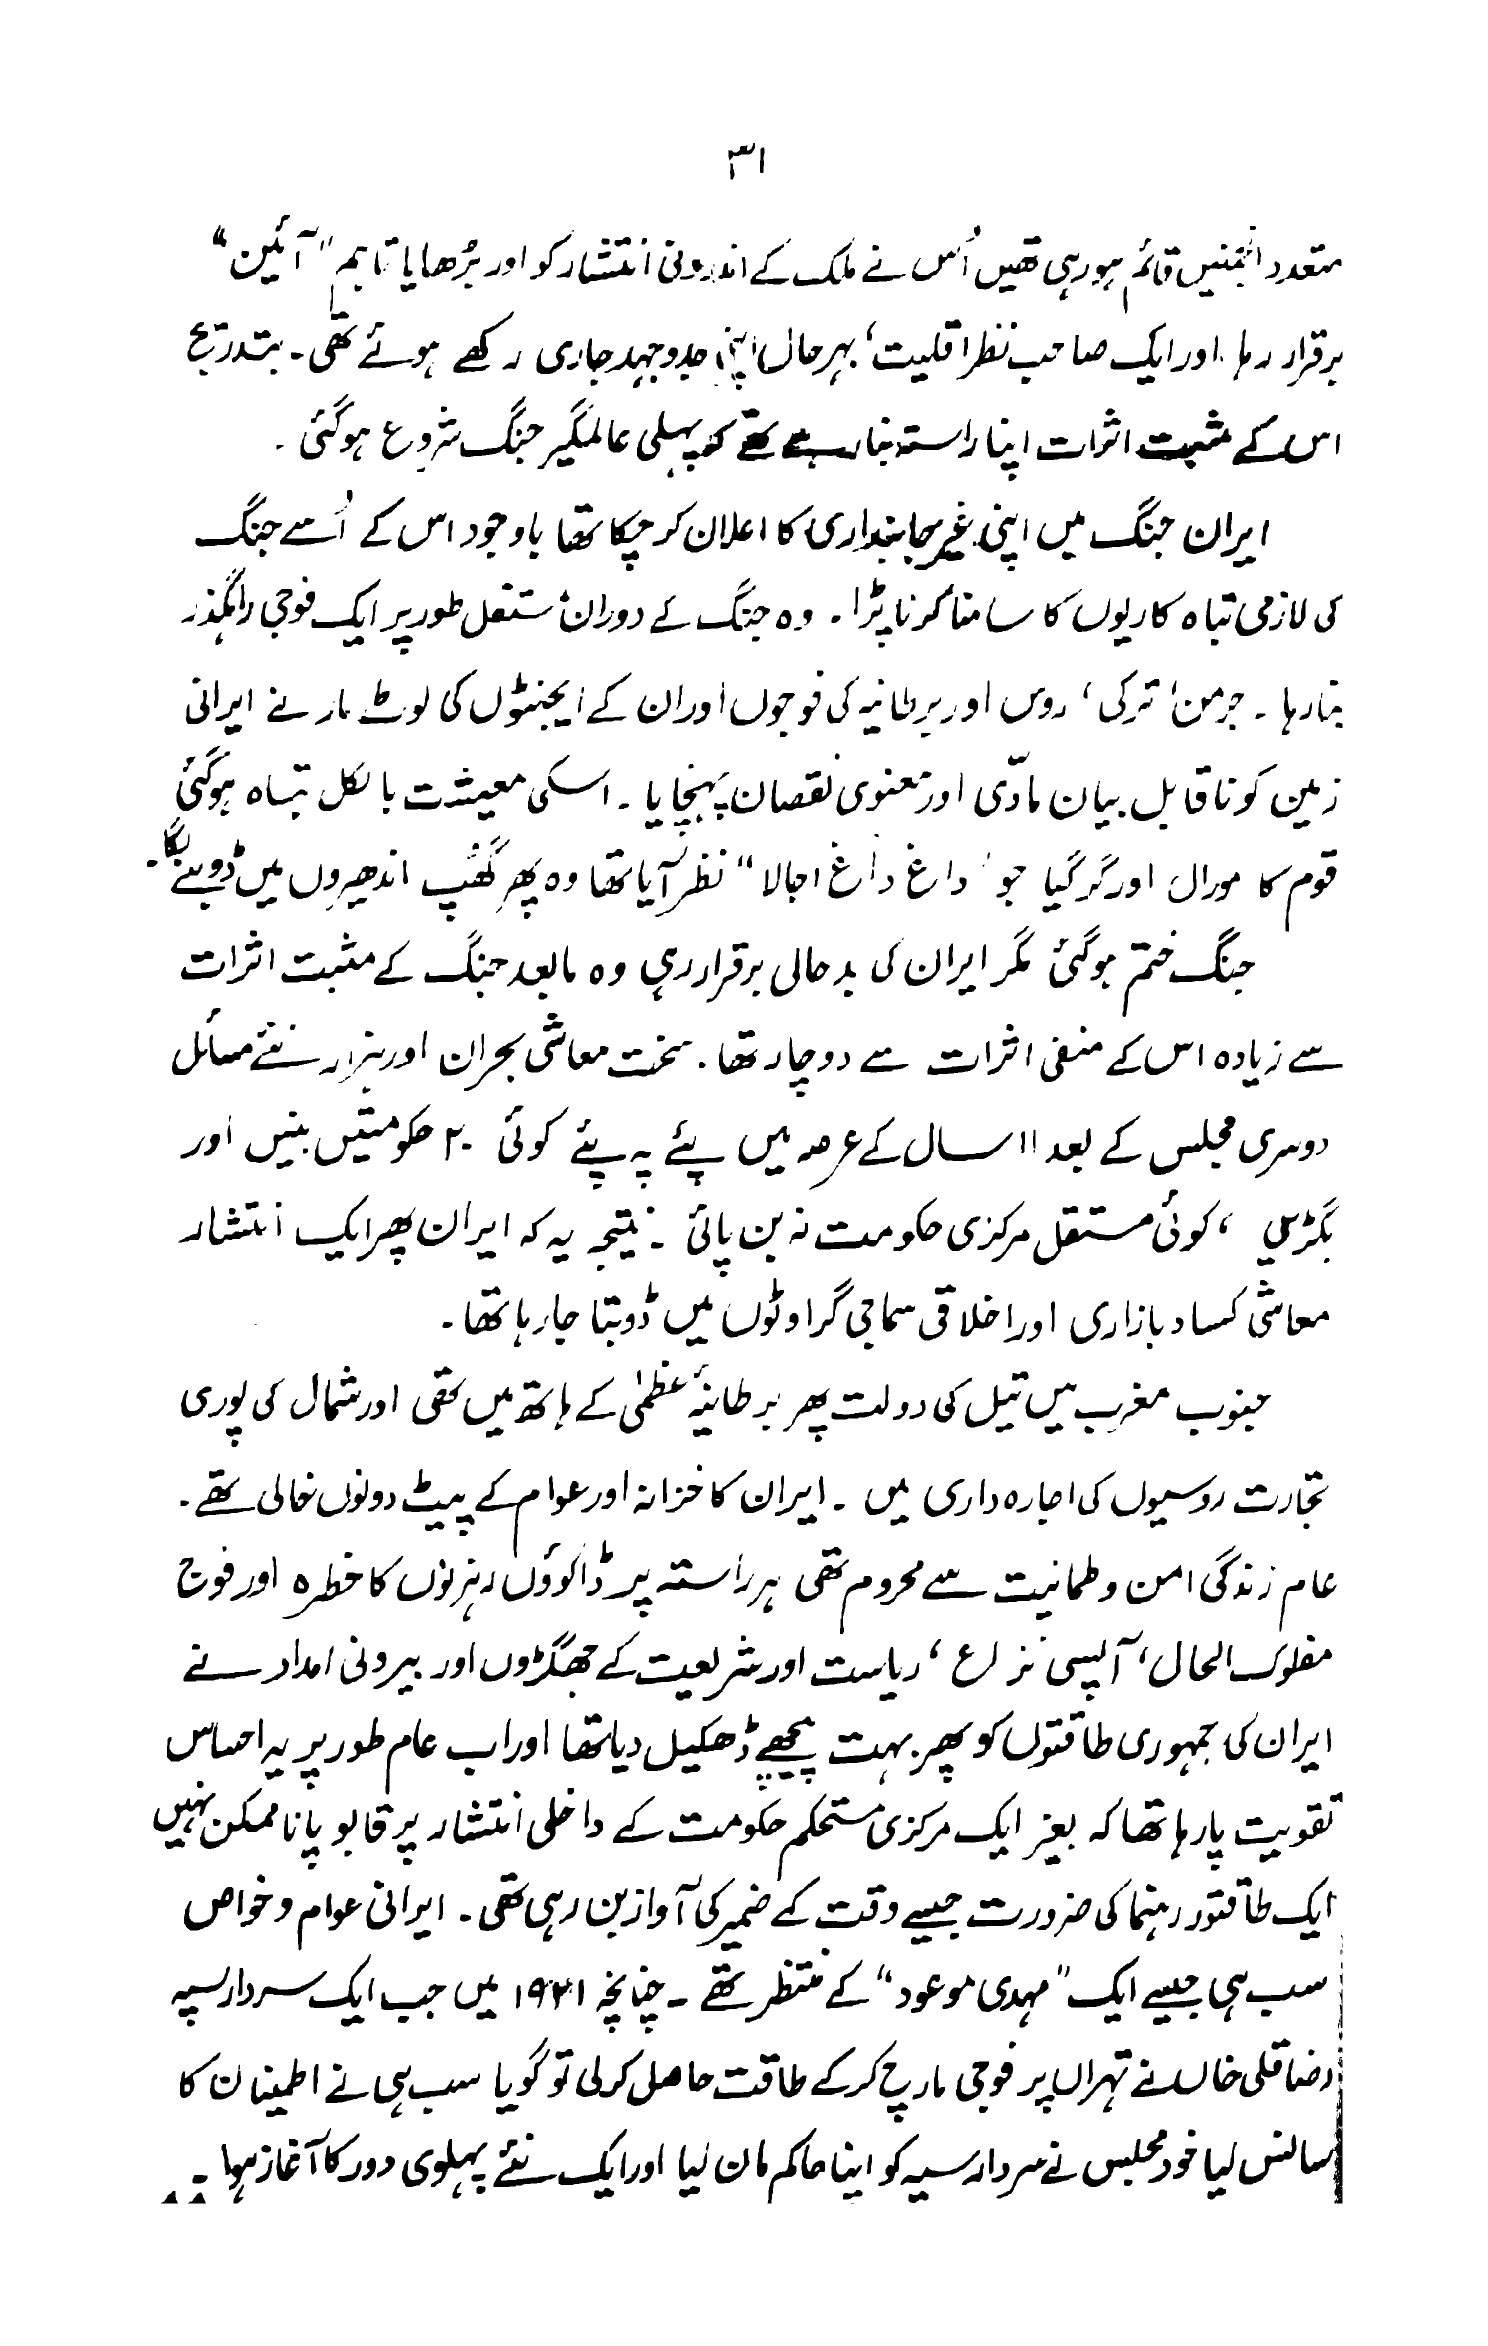 ۳۱
متعدد انجمنیں قائم ہورہی تھیں اُس نے ملک کے اندرونی انتشار کو اور بڑھایا تاہم "آئین"
برقرار رہا اور ایک صاحب نظر اقلیت، بہرحال اپنی جدوجہد جاری رکھے ہوئے تھی۔ بتدریج
اس کے مثبت اثرات اپنا راستہ بنا رہے تھے کہ پہلی عالمگیر جنگ شروع ہوگئی۔
ایران جنگ میں اپنی غیر جانبداری کا اعلان کر چکا تھا باوجود اس کے اُسے جنگ
کی لازمی تباہ کاریوں کا سامنا کرنا پڑا۔ وہ جنگ کے دوران مستقل طور پر ایک فوجی راہگذر
بنا رہا۔ جرمن، ترکی، روس اور برطانیہ کی فوجوں اور ان کے ایجنٹوں کی لوٹ مار نے ایرانی
زمین کو ناقابل بیان مادّی اور معنوی نقصان پہنچایا۔ اسکی معیشت بالکل تباہ ہوگئی
قوم کا مورال اور گر گیا جو "داغ داغ اجالا" نظر آیا تھا وہ پھر گھُپ اندھیروں میں ڈوبنے لگا۔
جنگ ختم ہوگئی مگر ایران کی بدحالی برقرار رہی وہ مابعد جنگ کے مثبت اثرات
سے زیادہ اس کے منفی اثرات سے دوچار تھا۔ سخت معاشی بحران اور ہزار نئے مسائل
دوسری مجلس کے بعد ۱۱ سال کے عرصہ میں پئے بہ پئے کوئی ۲۰ حکومتیں بنیں اور
بگڑیں، کوئی مستقل مرکزی حکومت نہ بن پائی۔ نتیجہ یہ کہ ایران پھر ایک انتشار
معاشی کساد بازاری اور اخلاقی سماجی گراوٹوں میں ڈوبتا جا رہا تھا۔
جنوب مغرب میں تیل کی دولت پھر برطانیۂ عظمیٰ کے ہاتھ میں تھی اور شمال کی پوری
تجارت روسیوں کی اجارہ داری میں۔ ایران کا خزانہ اور عوام کے پیٹ دونوں خالی تھے۔
عام زندگی امن و طمانیت سے محروم تھی ہر راستہ پر ڈاکوؤں رہزنوں کا خطرہ اور فوج
مفلوک الحال، آپسی نزاع، ریاست اور شریعت کے جھگڑوں اور بیرونی امداد نے
ایران کی جمہوری طاقتوں کو پھر بہت پیچھے ڈھکیل دیا تھا اور اب عام طور پر یہ احساس
تقویت پا رہا تھا کہ بغیر ایک مرکزی مستحکم حکومت کے داخلی انتشار پر قابو پانا ممکن نہیں
ایک طاقتور رہنما کی ضرورت جیسے وقت کے ضمیر کی آواز بن رہی تھی۔ ایرانی عوام و خواص
سب ہی جیسے ایک "مہدی موعود" کے منتظر تھے۔ چنانچہ ۱۹۲۱ میں جب ایک سردار سپہ
رضا قلی خاں نے تہران پر فوجی مارچ کرکے طاقت حاصل کرلی تو گویا سب ہی نے اطمینان کا
سانس لیا خود مجلس نے سردار سپہ کو اپنا حاکم مان لیا اور ایک نئے پہلوی دور کا آغاز ہوا۔